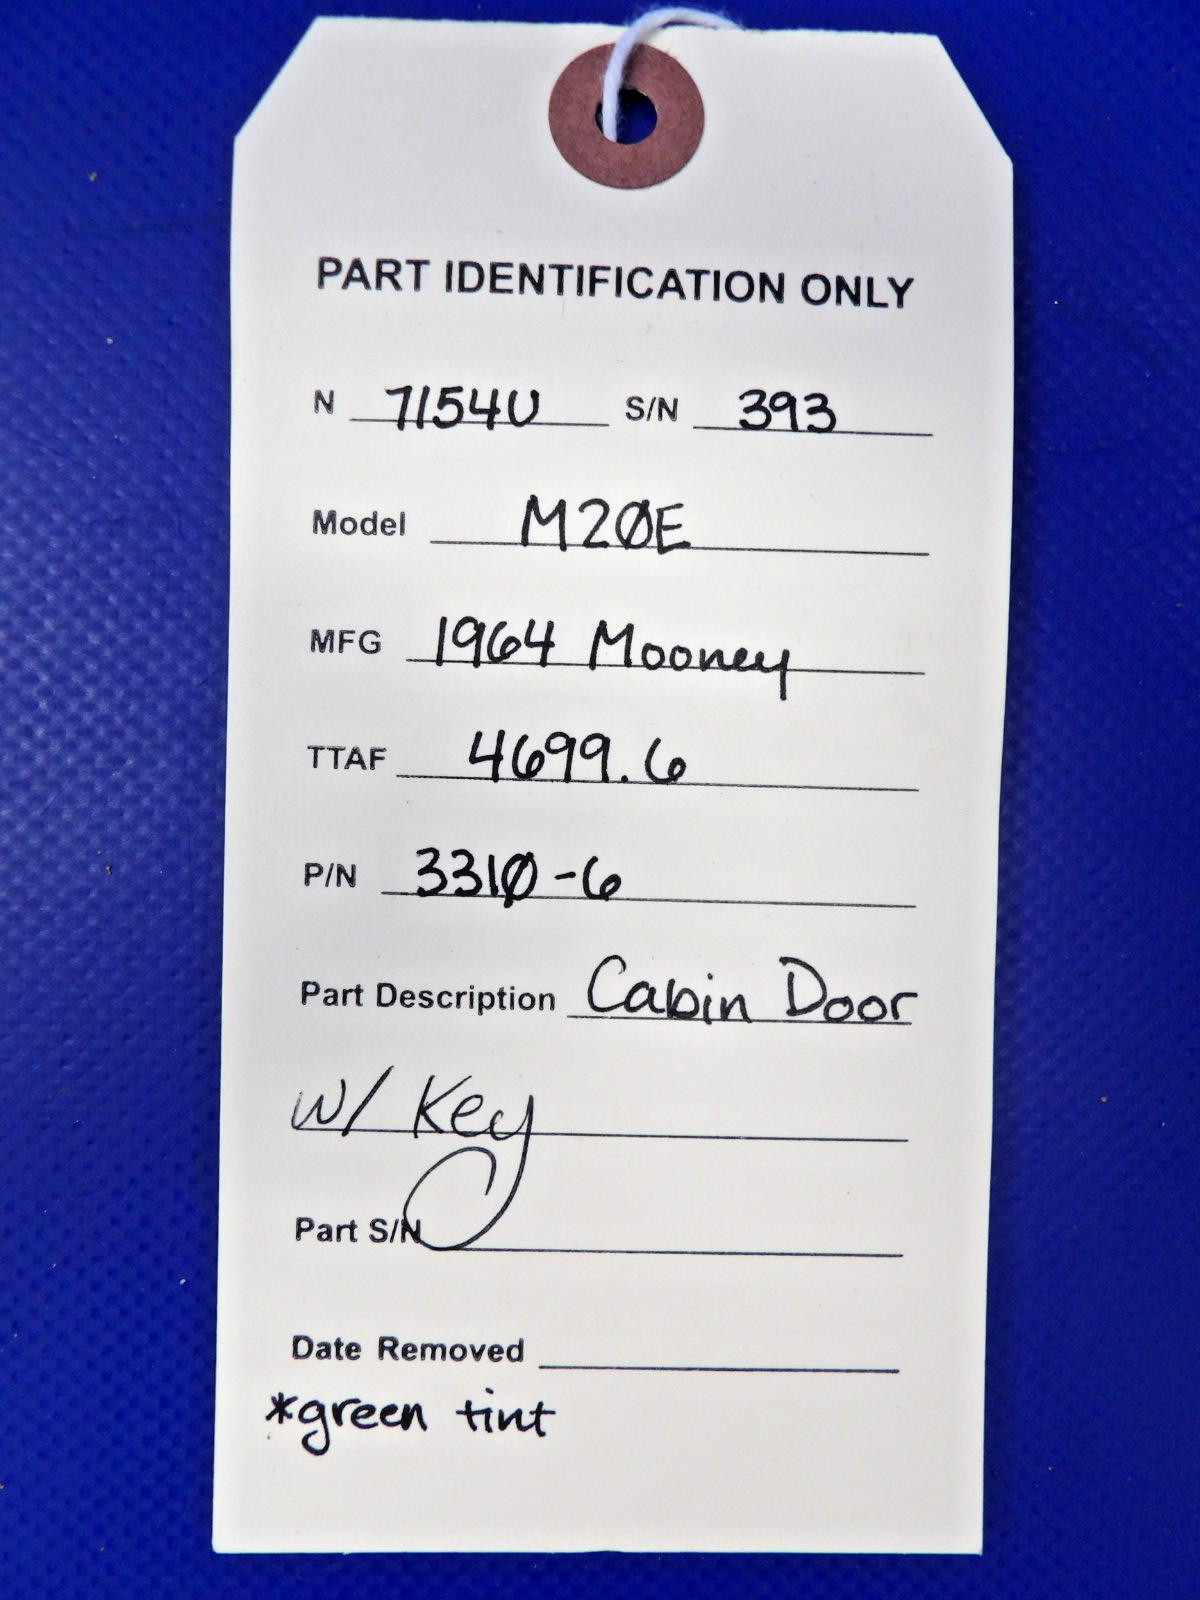 PART IDENTIFICATION ONLY
N 7154U S/N 393
Model M20E
MFG 1964 Mooney
TTAF 4699.6
P/N 3310-6
Part Description Cabin Door
w/ Key
Part S/N
Date Removed
*green tint